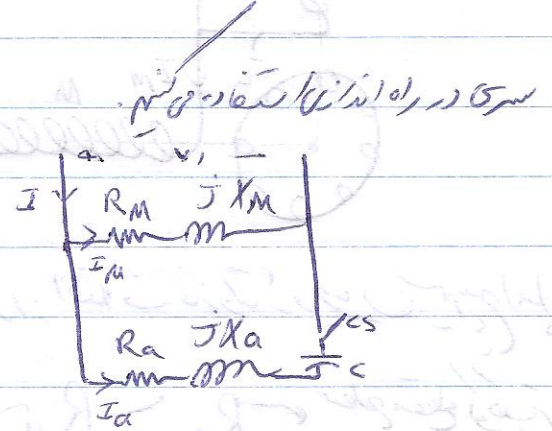 سری در راه اندازی استفاده می کنیم.
I
R_M jX_M
I_M
Ra jXa
CS
C
Ia